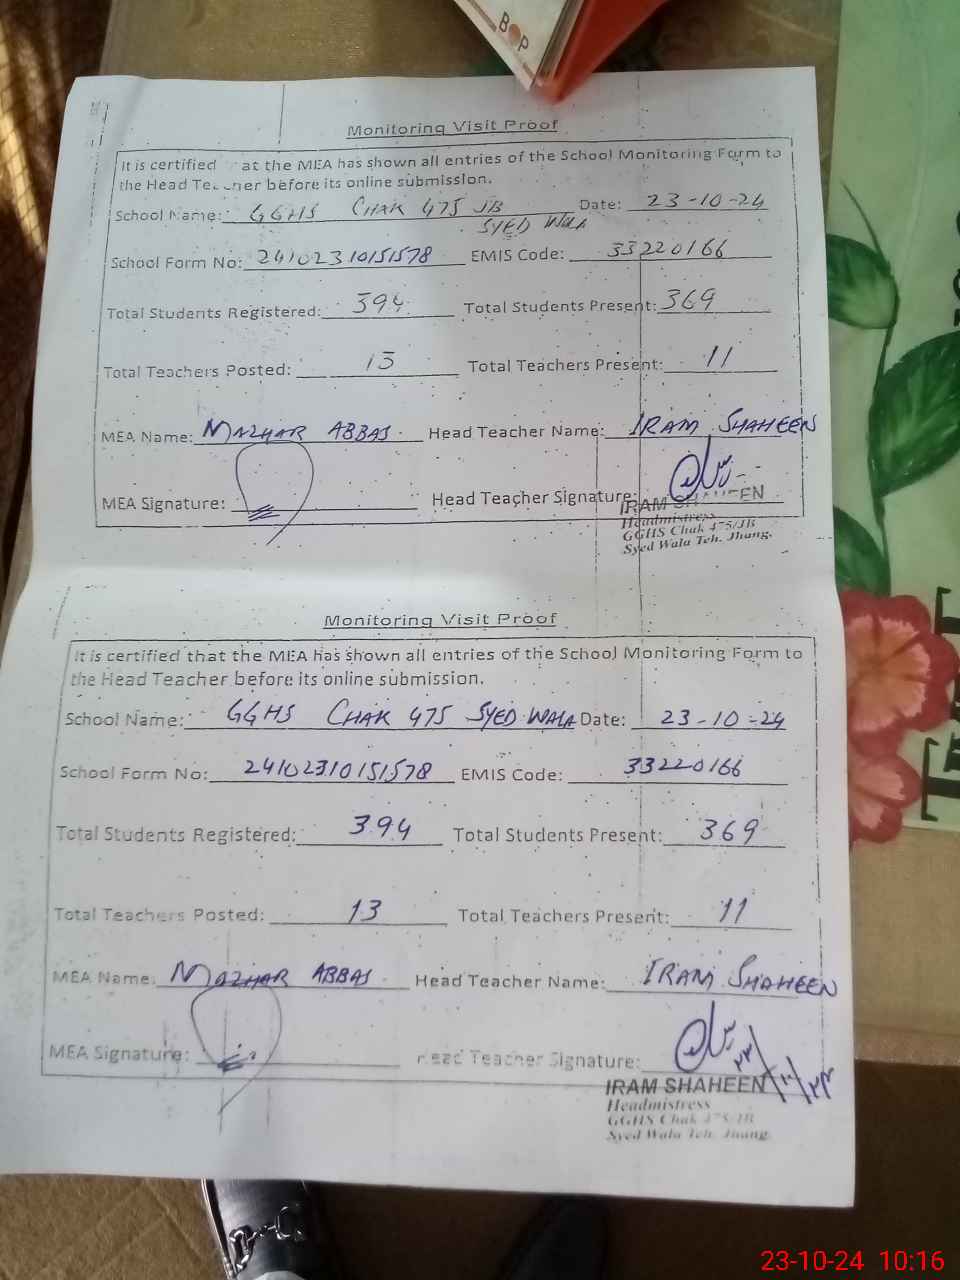 BOP
Monitoring Visit Proof
It is certified at the MEA has shown all entries of the School Monitoring Form to
the Head Teacher before its online submission.
School Name: GGHS CHAK 475 JB Date: 23-10-24
SYED WALA
School Form No: 24102310151578 EMIS Code: 33220166
Total Students Registered: 394 Total Students Present: 369
Total Teachers Posted: 13 Total Teachers Present: 11
MEA Name: MAZHAR ABBAS. Head Teacher Name: IRAM SHAHEEN
MEA Signature: Head Teacher Signature:
IRAM SHAHEEN
Headmistress
GGHS Chak 475/JB
Syed Wala Teh. Jhang.
Monitoring Visit Proof
It is certified that the MEA has shown all entries of the School Monitoring Form to
the Head Teacher before its online submission.
School Name: GGHS CHAK 475 SYED WALA Date: 23-10-24
School Form No: 24102310151578 EMIS Code: 33220166
Total Students Registered: 394 Total Students Present: 369
Total Teachers Posted: 13 Total Teachers Present: 11
MEA Name: MAZHAR ABBAS. Head Teacher Name: IRAM SHAHEEN
MEA Signature: Head Teacher Signature:
IRAM SHAHEEN
Headmistress
GGHS Chak 475/JB
Syed Wala Teh. Jhang.
23-10-24 10:16